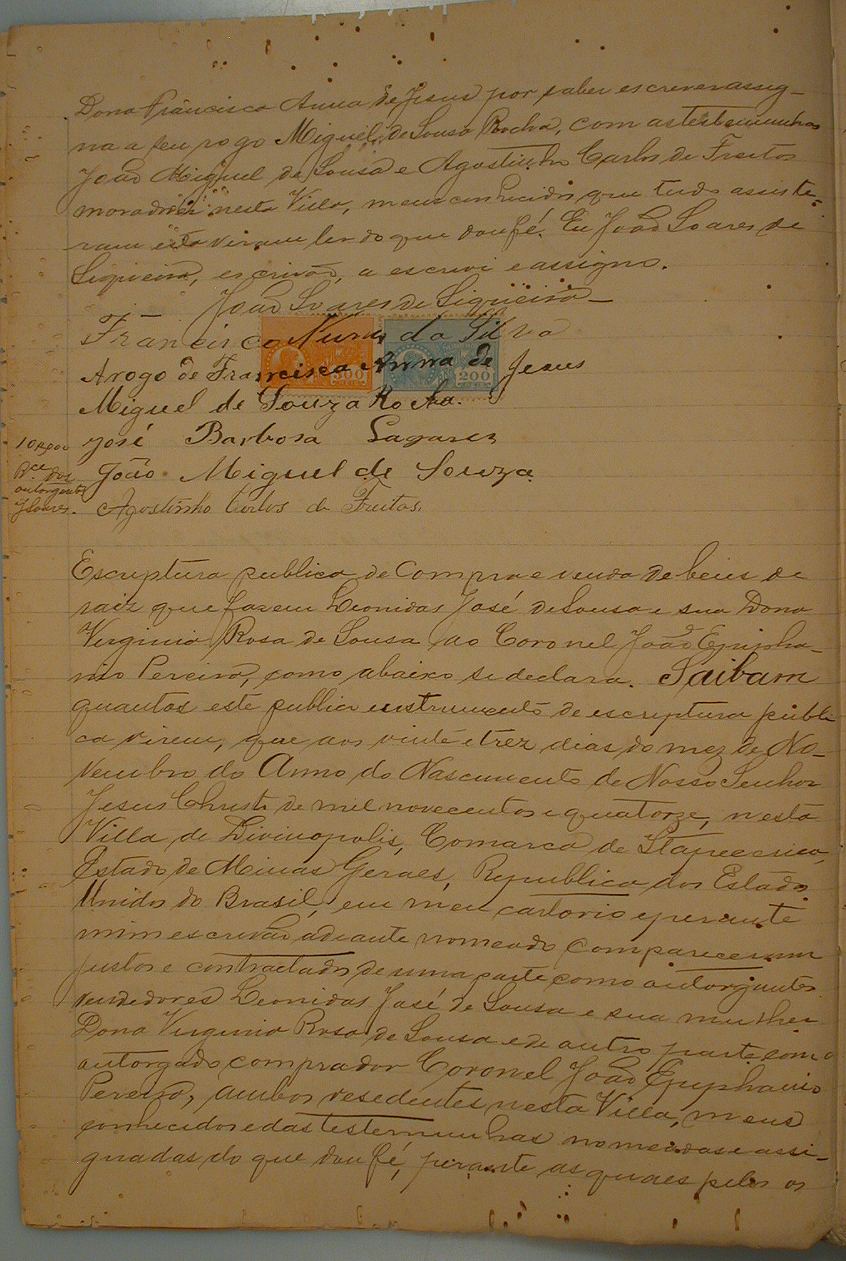 Dona Francisca Anna de Jesus por saber escrever assig-
na a seu rogo Miguel de Sousa Rocha, com as testemunhas
João Miguel de Sousa e Agostinho Carlos de Freitas
moradores nesta Villa, meus conhecidos que tudo assisti-
ram e viram ler do que dou fé. Eu João Soares de
Siqueira, escrivão, a escrevi e assigno.
João Soares de Siqueira
Francisco Nunes da Silva
300
200
Arogo de Francisca Anna de Jesus
Miguel de Souza Rocha.
José Barbosa
João Miguel de Souza
Agostinho Carlos de Freitas
dos
outorgantes
JSoares.
Escriptura publica de compra e venda de bens de
raiz que fazem Leonidas José de Sousa e sua Dona
Virginia Rosa de Sousa ao Coronel João Epipha-
nio Pereira, como abaixo se declara. Saibam
quantos este publico instrumento de escriptura publi
ca virem, que aos vinte e trez dias do mez de No-
vembro do Anno do Nascimento de Nosso Senhor
Jesus Christo de mil novecentos e quatorze, nesta
Villa de Divinopolis, Comarca de Itapecerica,
Estado de Minas Geraes, Republica dos Estados
Unidos do Brasil, em meu cartorio e perante
mim escrivão adeante nomeado compareceram
justos e contractados de uma parte como outorgantes
vendedores Leonidas José de Sousa e sua mulher
Dona Virginia Rosa de Sousa e de outra parte como
outorgado comprador Coronel João Epiphanio
Pereira, ambos resedentes nesta Villa, meus
conhecidos e das testemunhas nomeadas e assi-
gnadas do que dou fé, perante as quaes pelos os